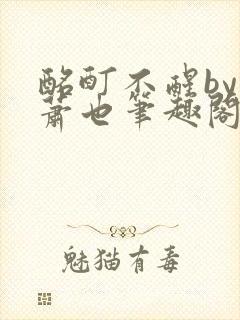 酩酊不醒by
萧也笔趣阁
魅猫有毒